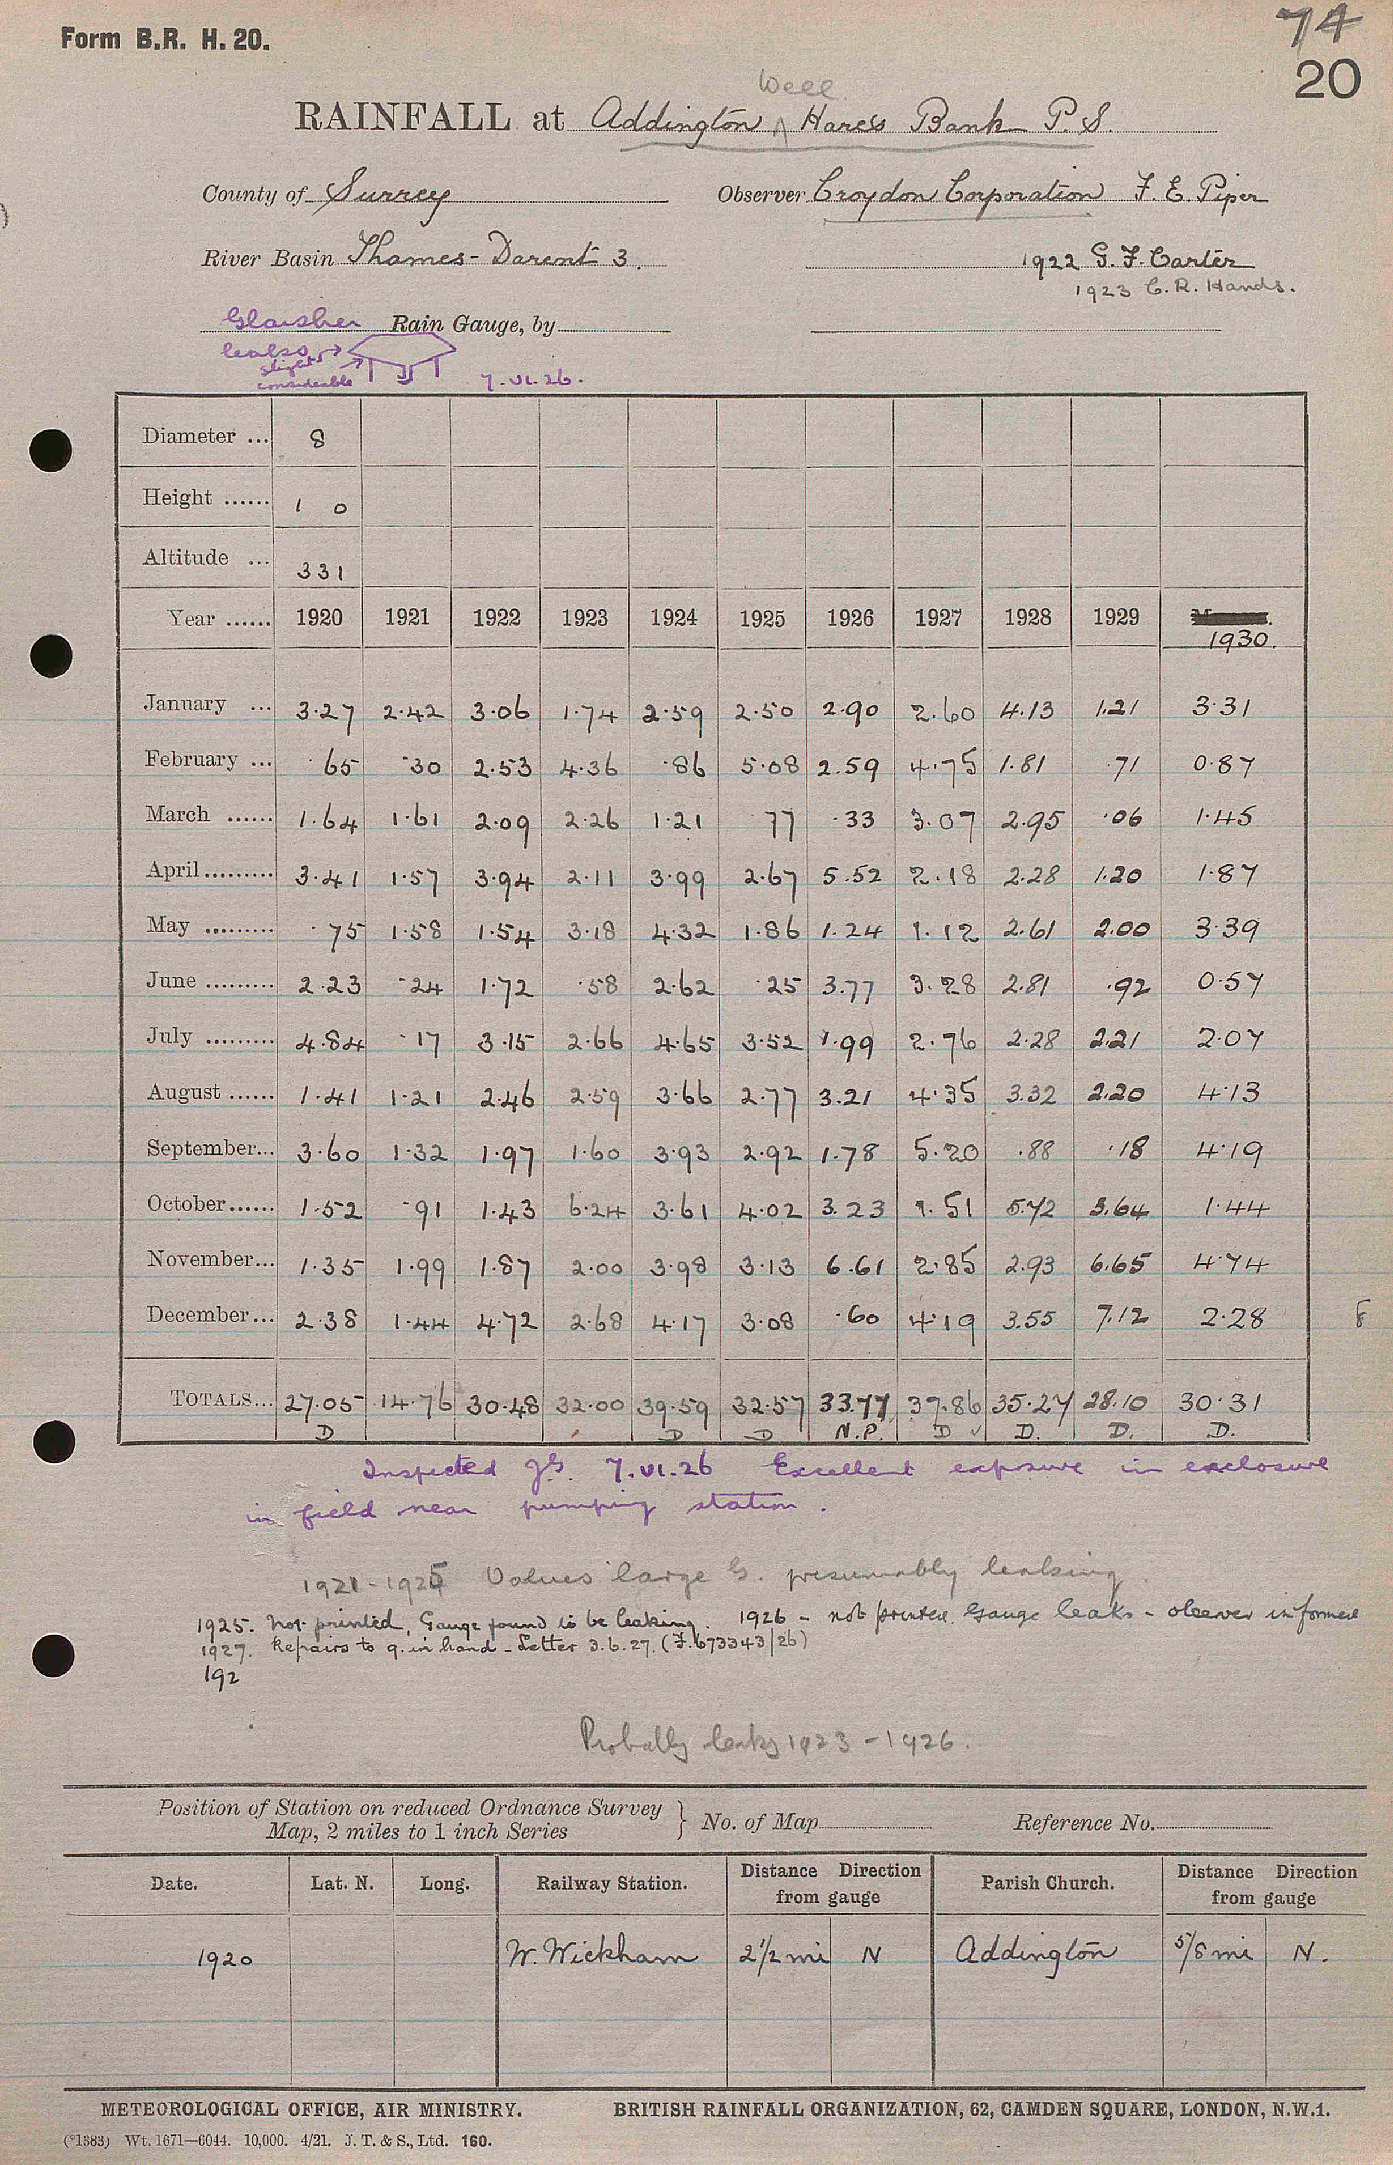 74
Form B.R. H. 20.
20
Well
RAINFALL at Addington ^ Hares Bank P. S.
County of Surrey Observer Croydon Corporation F. E. Piper
River Basin Thames - Darent 3. 1922 G. F. Carter
1923 C. R. Hands.
Glaisher Rain Gauge, by
leaks
slight
considerable 7.VI.26.
Diameter ... 8
Height ...... 1 0
Altitude ... 331
Year ...... 1920 1921 1922 1923 1924 1925 1926 1927 1928 1929
1930.
January ... 3.27 2.42 3.06 1.74 2.59 2.50 2.90 2.60 4.13 1.21 3.31
February ... .65 .30 2.53 4.36 .86 5.08 2.59 4.75 1.81 .71 0.87
March ...... 1.64 1.61 2.09 2.26 1.21 .77 .33 3.07 2.95 .06 1.45
April ......... 3.41 1.57 3.94 2.11 3.99 2.67 5.52 2.18 2.28 1.20 1.87
May ......... .75 1.58 1.54 3.18 4.32 1.86 1.24 1.12 2.61 2.00 3.39
June ......... 2.23 .24 1.72 .58 2.62 .25 3.77 3.28 2.81 .92 0.57
July ......... 4.84 .17 3.15 2.66 4.65 3.52 1.99 2.76 2.28 2.21 2.07
August ...... 1.41 1.21 2.46 2.59 3.66 2.77 3.21 4.35 3.32 2.20 4.13
September... 3.60 1.32 1.97 1.60 3.93 2.92 1.78 5.20 .88 .18 4.19
October...... 1.52 .91 1.43 6.24 3.61 4.02 3.23 1.51 5.72 3.64 1.44
November... 1.35 1.99 1.87 2.00 3.98 3.13 6.61 2.85 2.93 6.65 4.74
December... 2.38 1.44 4.72 2.68 4.17 3.08 .60 4.19 3.55 7.12 2.28
TOTALS... 27.05 14.76 30.48 32.00 39.59 32.57 33.77 37.86 35.27 28.10 30.31
D D D N.P. D ✓ D. D. D.
Inspected JG. 7.VI.26 Excellent exposure in enclosure
in field near pumping station.
1921-1925 Values large G. presumably leaking
1925. Not printed, Gauge found to be leaking. 1926 - not printed Gauge leaks - observer informed
1927. Repairs to g. in hand - Letter 3.6.27. (F.673343/26)
192
Probably leaks 1923 - 1926.
Position of Station on reduced Ordnance Survey
Map, 2 miles to 1 inch Series } No. of Map Reference No.
Date. Lat. N. Long. Railway Station. Distance Direction from gauge Parish Church. Distance Direction from gauge
1920 W. Wickham 2 1/2 mi N Addington 5/8 mi N.
METEOROLOGICAL OFFICE, AIR MINISTRY. BRITISH RAINFALL ORGANIZATION, 62, CAMDEN SQUARE, LONDON, N.W.1.
(*1383) Wt. 1671—6044. 10,000. 4/21. J. T. & S., Ltd. 160.